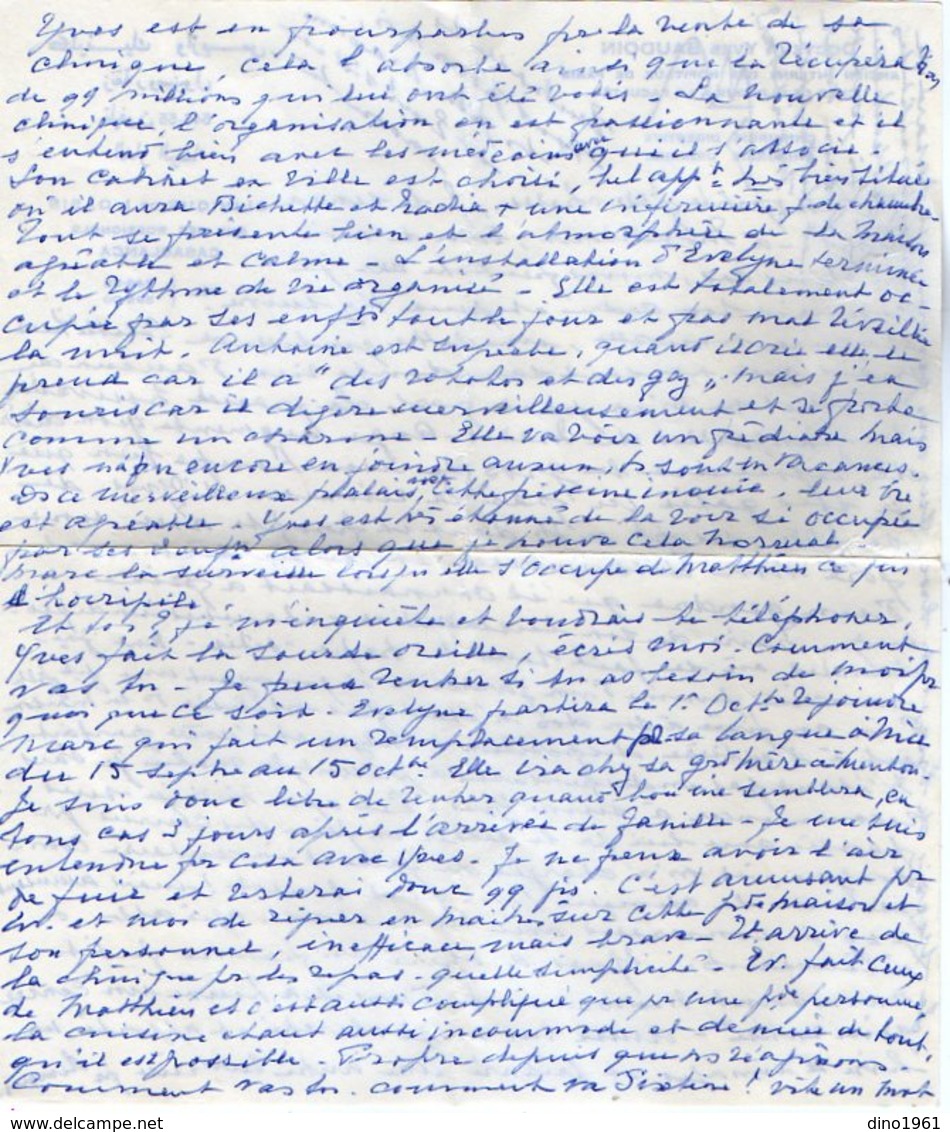 Yves est en pourparlers pr la vente de sa
clinique cela l'absorbe ainsi que la récupération
de qq millions qui lui ont été volés - La nouvelle
clinique, l'organisation en est passionnante et il
s'entend bien avec les médecins avec qui il s'associe.
Son cabinet en ville est choisi, bel appt très bien situé
où il aura Bichette et Nadia + une infirmière f. de chambre
Tout se présente bien et l'atmosphère de la maison
agréable et calme - L'installation d'Evelyne terminée
et le rythme de vie organisé - Elle est totalement oc
cupée par ses enfts tout le jour et pas mal réveillée
la nuit. Antoine est superbe, quand il crie elle le
prend car il a "des rototos et des gaz" mais j'en
souris car il digère merveilleusement et se porte
comme un charme - Elle va voir un pédiatre mais
Yves n'a pu encore en joindre aucun, ts sont en vacances.
Ds ce merveilleux palais, cette piscine inouïe, leur vie
est agréable. Yves est très étonné de la voir si occupée
par ses 2 enfts alors que je trouve cela normal
Marc la surveille lorsqu'elle s'occupe de Matthieu ce qui
l'horripile
Et toi ? je m'inquiète et voudrais te téléphoner,
Yves fait la sourde oreille, écris moi. Comment
vas tu - Je peux rentrer si tu as besoin de moi pr
quoi que ce soit. Evelyne partira le 1r Octbre rejoindre
Marc qui fait un remplacement pr sa langue à Nice
du 15 Septre au 15 Octbre. Elle ira chez sa grd mère à Menton.
Je suis donc libre de rentrer quand bon me semblera, en
tous cas 3 jours après l'arrivée de Janille - Je me suis
entendue pr cela avec Yves. Je ne peux avoir l'air
de fuir et resterai donc qq jrs. C'est amusant pr
Ev. et moi de régner en maître sur cette gde maison et
son personnel, inefficace, mais brave - Yv arrive de
la clinique pr les repas - quelle simplicité - Ev. fait ceux
de Matthieu et c'est aussi compliqué que pr une gde personne,
la cuisine étant aussi incommode et démunie de tout
qu'il est possible - Propre depuis que ns régnons.
Comment vas tu. comment va Sixtine ! vite un mot
dino1961